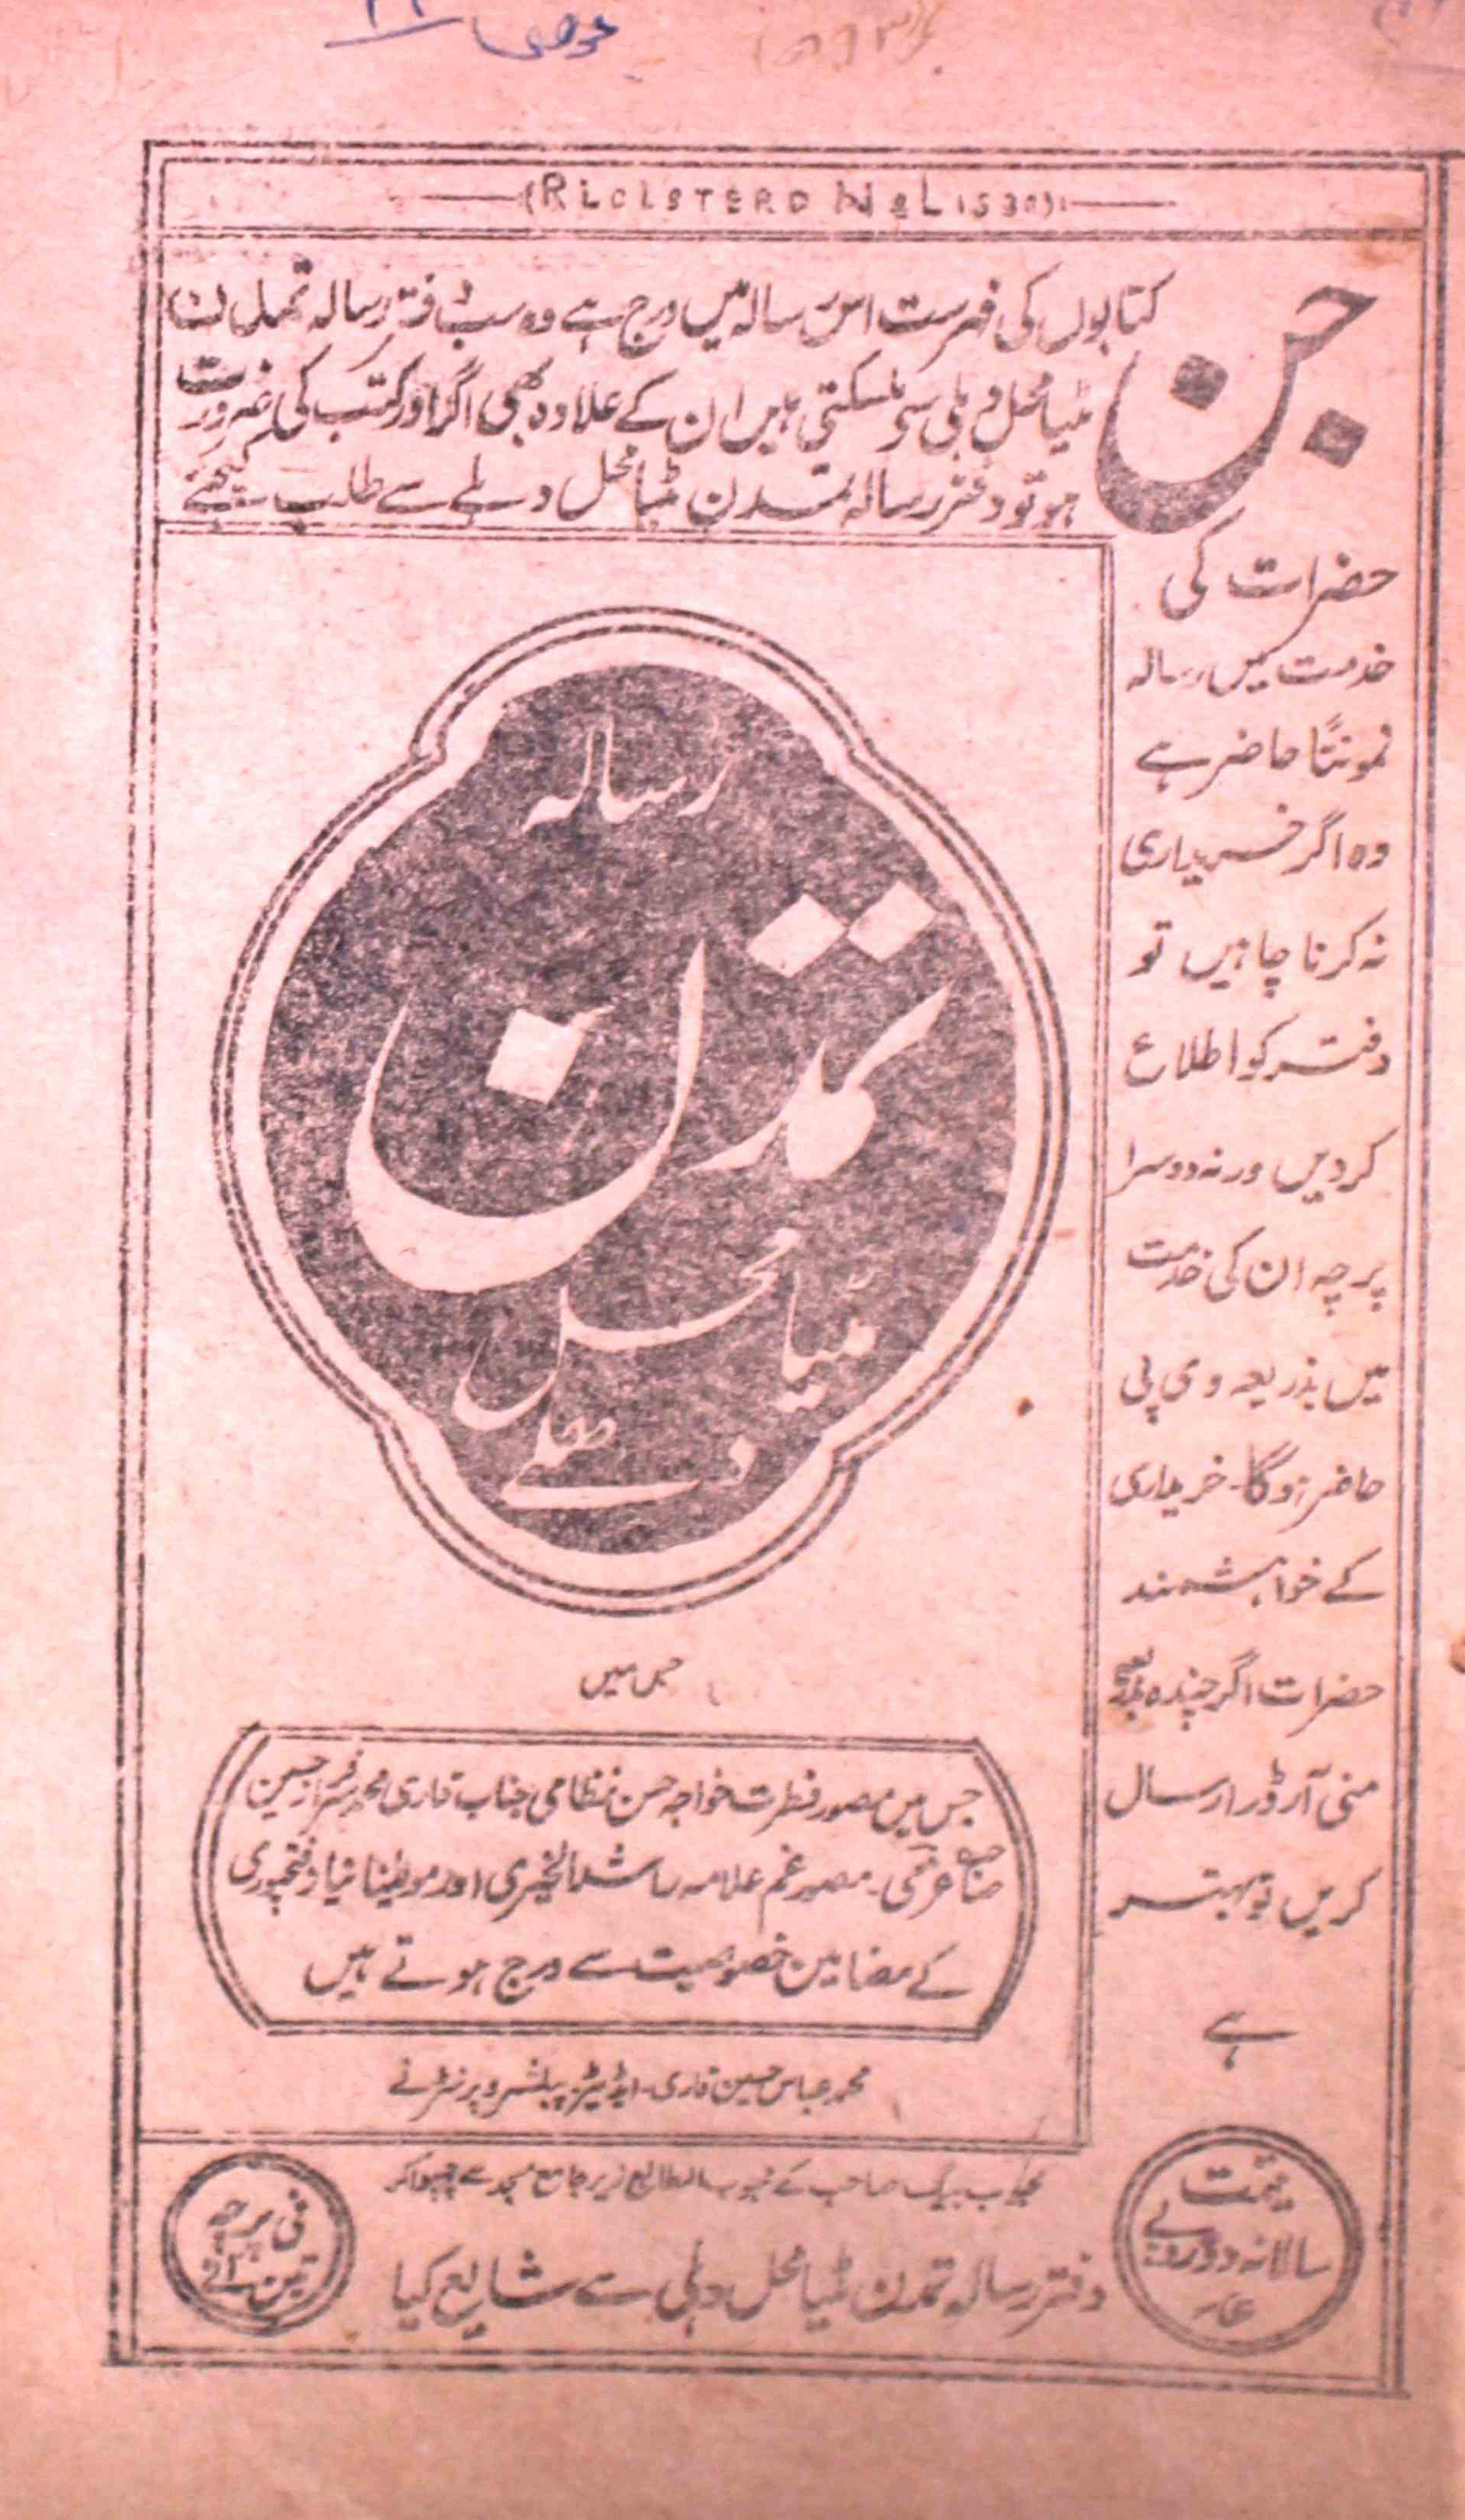 (RLGLSTERD No L 1530)
جن
کتابوں کی فہرست اس رسالہ میں درج ہے وہ سب دفتر رسالہ تمدن
مٹیا محل دہلی سی ملسکتی ہیں ان کے علاوہ بھی اگر اور کتب کی ضرورت
ہو تو دفتر رسالہ تمدن مٹیا محل دہلے سے طلب کیجئے
حضرات کی
خدمت میں رسالہ
نمونتاً حاضر ہے
وہ اگر خریداری
نہ کرنا چاہیں تو
دفتر کو اطلاع
کردیں ورنہ دوسرا
پرچہ ان کی خدمت
میں بذریعہ وی پی
حاضر ہوگا۔ خریداری
کے خواہشمند
حضرات اگر چندہ بذریعہ
منی آرڈر ارسال
کریں تو بہتر
ہے
رسالہ
تمدن
مٹیا محل
دہلے
جس میں
جس میں مصور فطرت خواجہ حسن نظامی جناب قاری محمد سرفراز حسین
صاحب عزمی۔ مصور غم علامہ راشد الخیری اور مولینا نیاز فتحپوری
کے مضامین خصوصیت سے درج ہوتے ہیں
محمد عباس حسین قاری۔ ایڈیٹر پبلشر و پرنٹر نے
محبوب بیگ صاحب کے محبوب المطابع زیر جامع مسجد سے چھپوا کر
دفتر رسالہ تمدن مٹیا محل دہلی سے شایع کیا
قیمت
سالانہ دو روپے
فی پرچہ
تین آنے